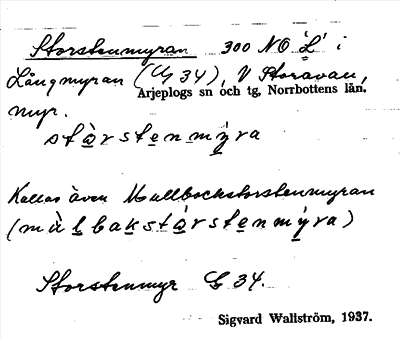 Storstenmyran 300 NO 'L' i
Långmyran (Uy 34), V Storavan,
Arjeplogs sn och tg, Norrbottens län.
myr.
stàrstenmýra
Kallas även Mullbockstorstenmyran
(mùlbakstàrstenmýra)
Storstenmyr G 34.
Sigvard Wallström, 1937.